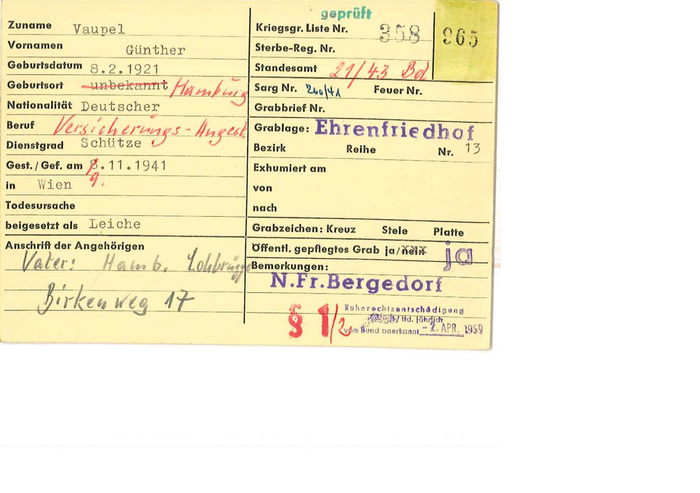 geprüft
Zuname Vaupel
Vornamen Günther
Geburtsdatum 8.2.1921
Geburtsort unbekannt / Hamburg
Nationalität Deutscher
Beruf Versicherungs-Angest.
Dienstgrad Schütze
Gest./Gef. am 8.11.1941
9.
in Wien
Todesursache
beigesetzt als Leiche
Anschrift der Angehörigen
Vater: Hamb. Lohbrügge
Birkenweg 17
Kriegsgr. Liste Nr. 358 965
Sterbe-Reg. Nr.
Standesamt 21/43 Bd
Sarg Nr. 260/41 Feuer Nr.
Grabbrief Nr.
Grablage: Ehrenfriedhof
Bezirk Reihe Nr. 13
Exhumiert am
von
nach
Grabzeichen: Kreuz Stele Platte
Öffentl. gepflegtes Grab ja/nein ja
Bemerkungen:
N.Fr.Bergedorf
§ 1/2
Ruherechtsentschädigung
/lfd. jährlich
vom Bund anerkannt - 2. APR. 1959